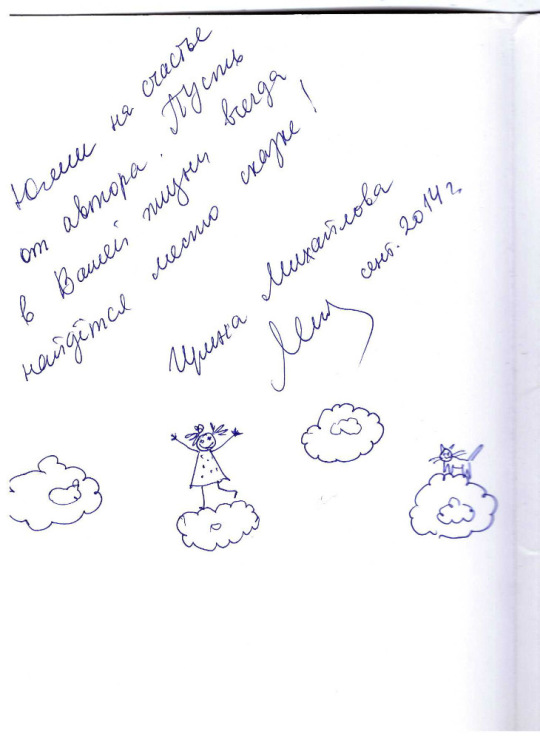 Юлии на счастье
от автора. Пусть
в Вашей жизни всегда
найдётся место сказке!
Ирина Михайлова
сент. 2014 г.